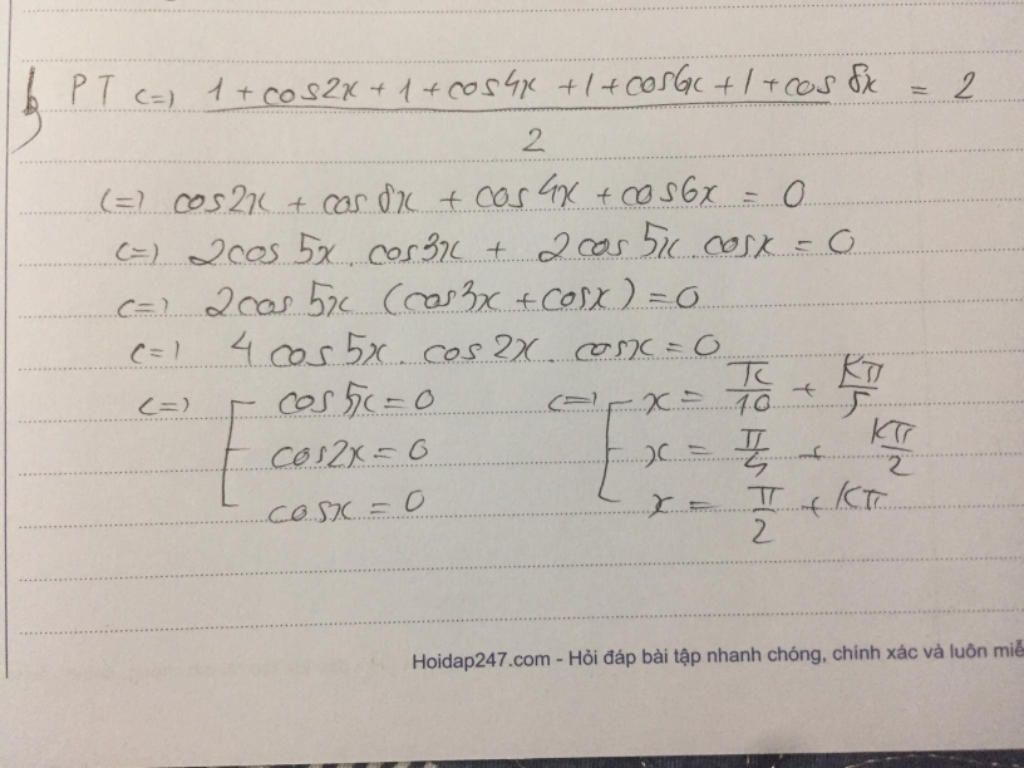 b) PT <=> 1 + cos2x + 1 + cos4x + 1 + cos6x + 1 + cos 8x = 2
2
<=> cos2x + cos 8x + cos 4x + cos6x = 0
<=> 2cos 5x. cos3x + 2cos 5x. cosx = 0
<=> 2cos 5x (cos3x + cosx) = 0
<=> 4 cos 5x. cos 2x. cosx = 0
<=> [ cos 5x = 0 <=> [ x = π/10 + Kπ/5
cos2x = 0 x = π/4 + Kπ/2
cosx = 0 x = π/2 + Kπ
Hoidap247.com - Hỏi đáp bài tập nhanh chóng, chính xác và luôn miễ